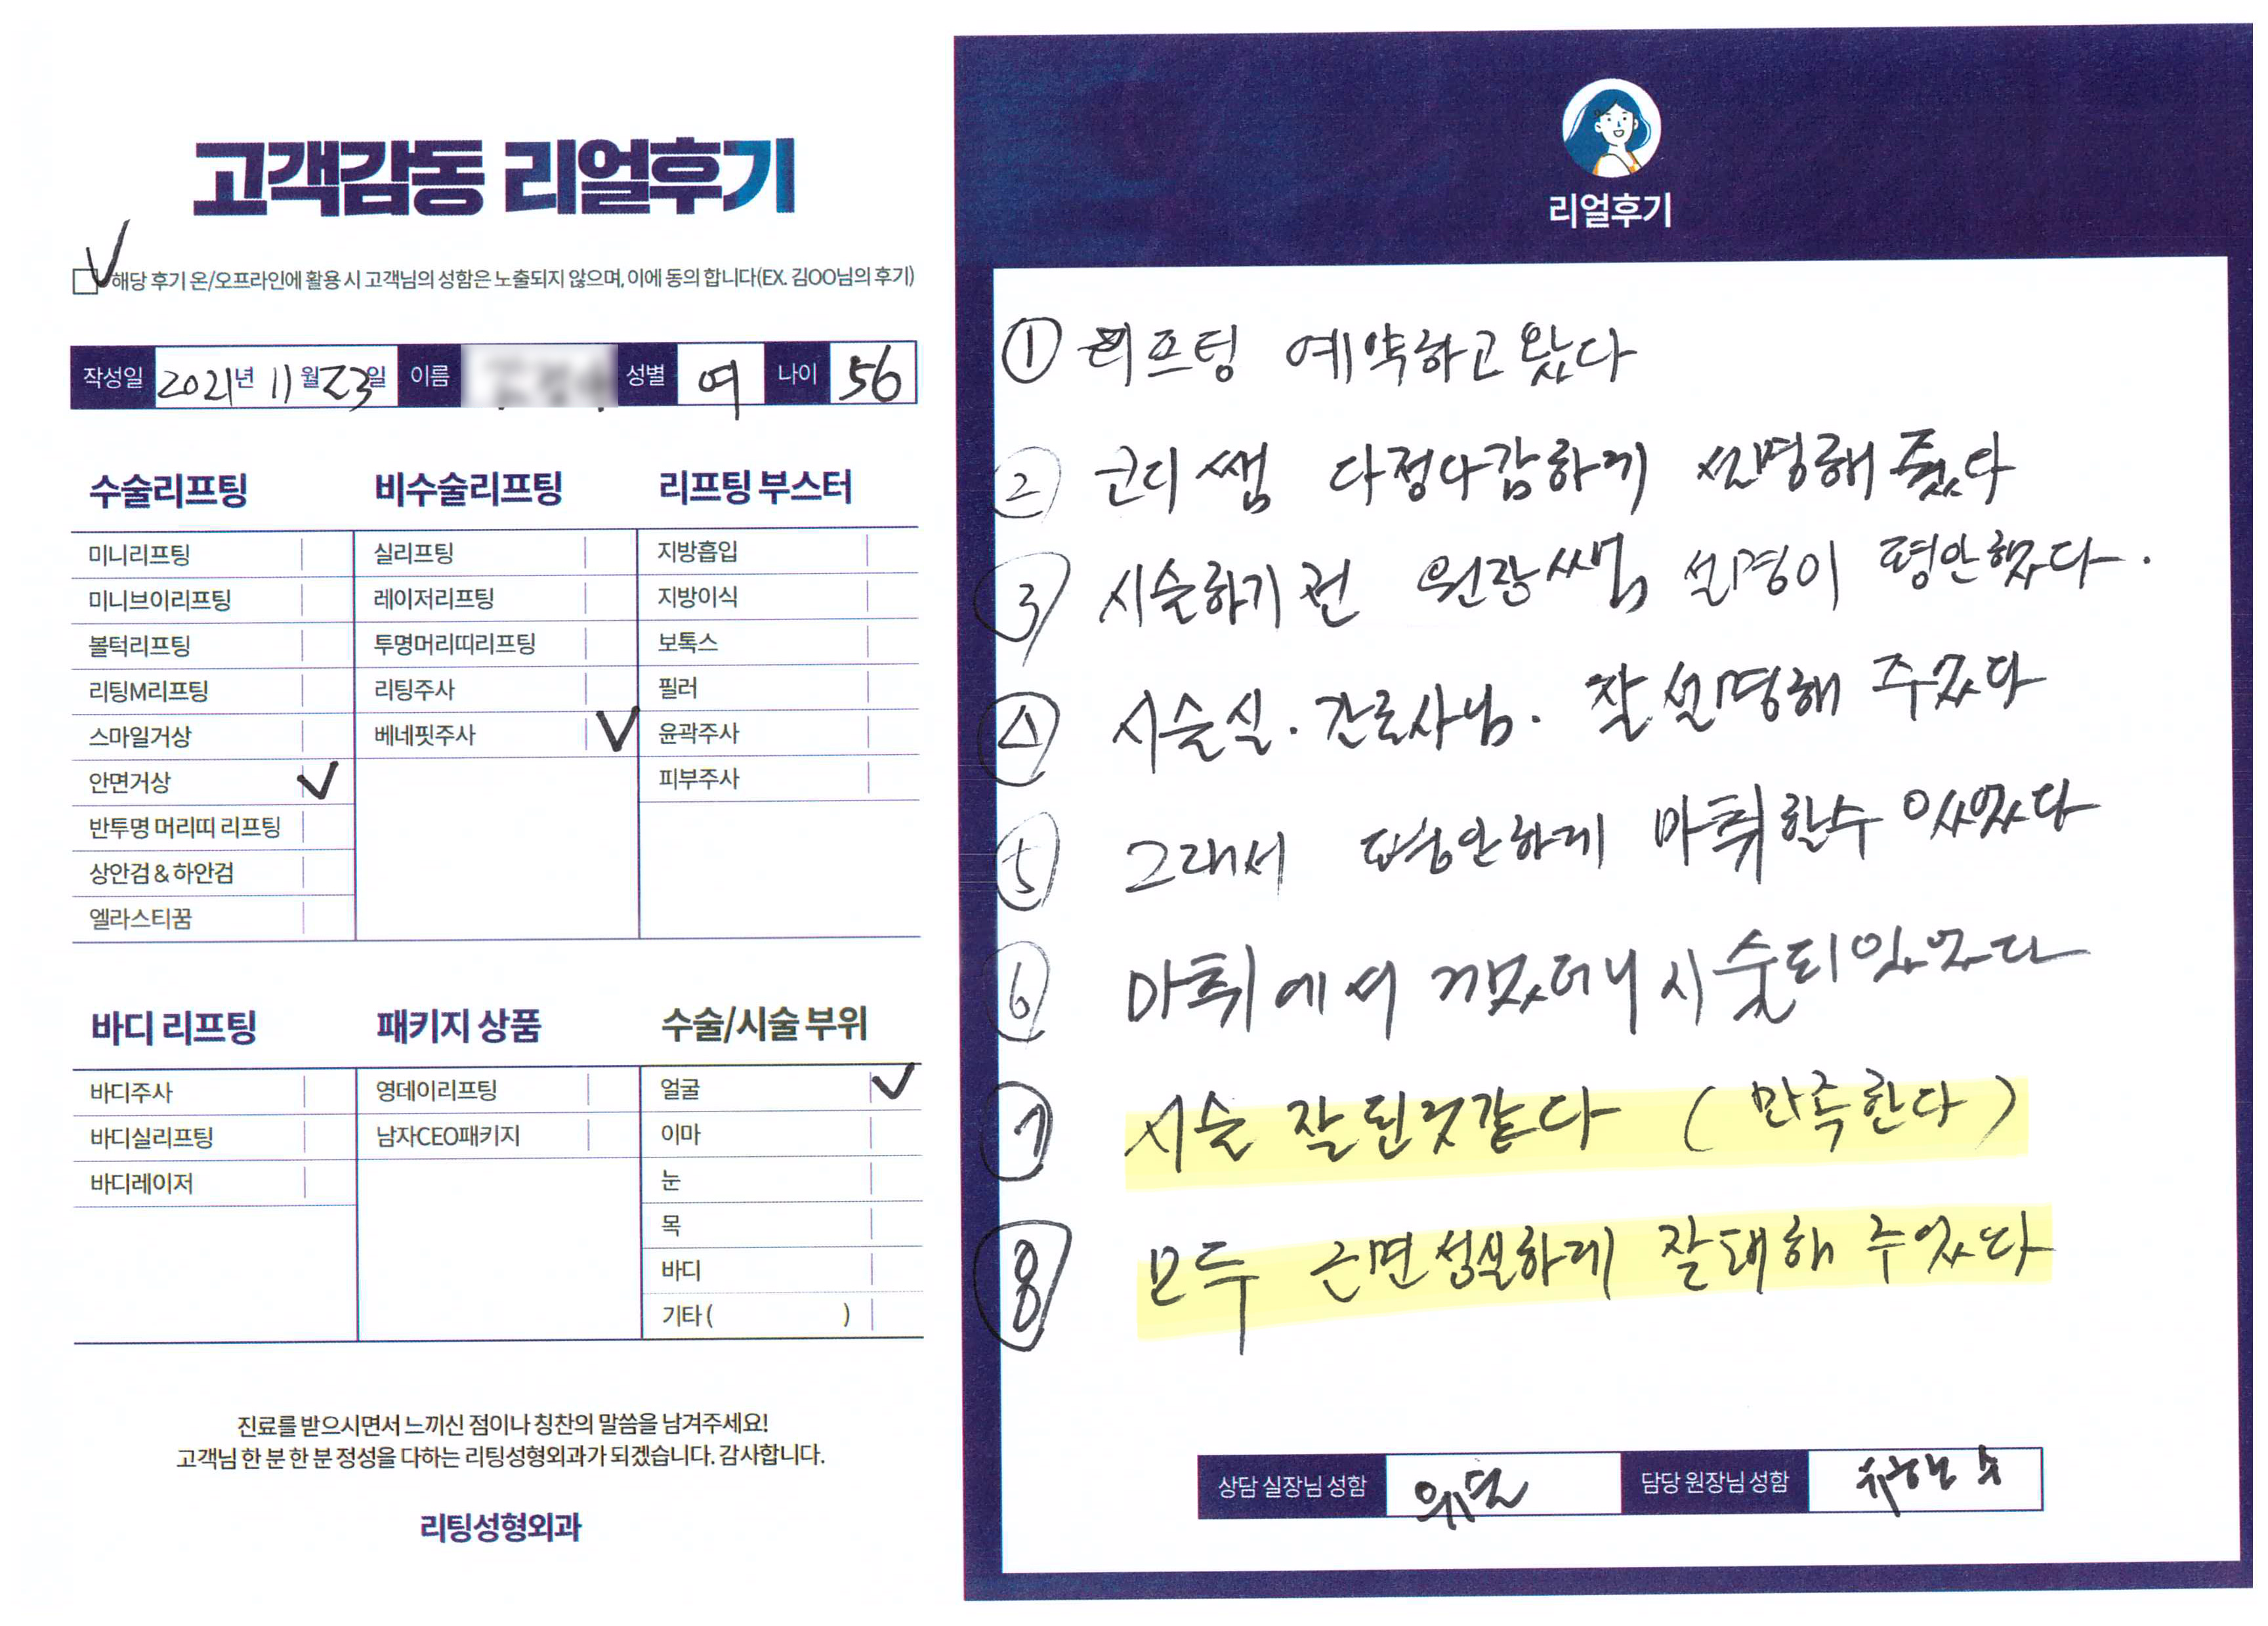 고객감동 리얼후기
해당 후기 온/오프라인에 활용 시 고객님의 성함은 노출되지 않으며, 이에 동의 합니다(EX. 김OO님의 후기)
작성일 2021년 11월 23일 이름 성별 여 나이 56
수술리프팅
미니리프팅
미니브이리프팅
볼턱리프팅
리팅M리프팅
스마일거상
안면거상
반투명 머리띠 리프팅
상안검 & 하안검
엘라스티꿈
비수술리프팅
실리프팅
레이저리프팅
투명머리띠리프팅
리팅주사
베네핏주사
리프팅 부스터
지방흡입
지방이식
보톡스
필러
윤곽주사
피부주사
바디 리프팅
바디주사
바디실리프팅
바디레이저
패키지 상품
영데이리프팅
남자CEO패키지
수술/시술 부위
얼굴
이마
눈
목
바디
기타 ( )
진료를 받으시면서 느끼신 점이나 칭찬의 말씀을 남겨주세요!
고객님 한 분 한 분 정성을 다하는 리팅성형외과가 되겠습니다. 감사합니다.
리팅성형외과
리얼후기
① 리프팅 예약하고 왔다
② 코디쌤 다정다감하게 설명해 줬다
③ 시술하기전 원장쌤 설명이 평안했다.
④ 시술실. 간호사님. 잘 설명해 주었다
⑤ 그래서 평안하게 마취할수 있었다
⑥ 마취에서 깼더니 시술되있었다
⑦ 시술 잘된것같다 (만족한다)
⑧ 모두 근면성실하게 잘대해 주었다
상담 실장님 성함
담당 원장님 성함